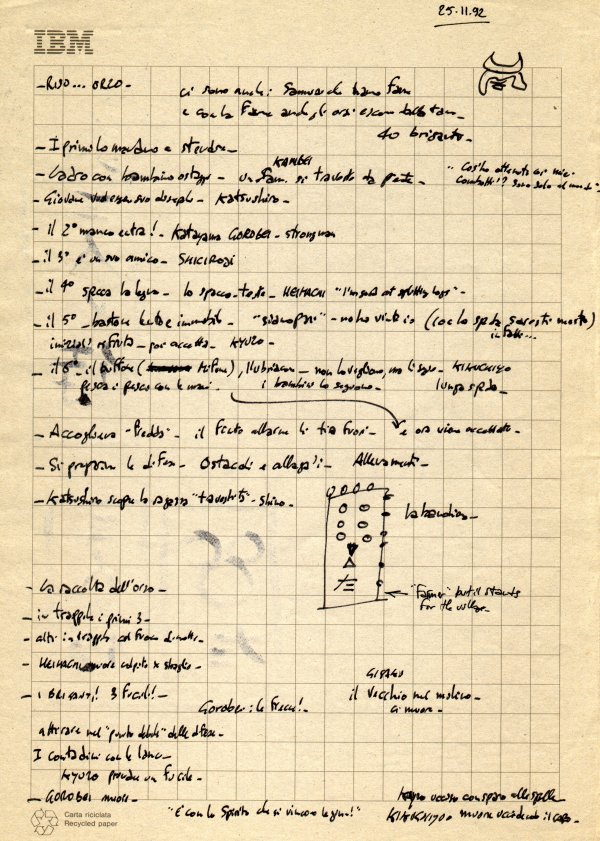 25.11.92
IBM
- RISO... ORZO -
ci sono anche i Samurai che hanno fame
e con la fame anche gli orsi escono dalle tane
40 briganti -
- I primi lo mandano e
KAMBEI
- Ladro con bambino ostaggio - un Sam. si traveste da prete -
".. Cos'ho ottenuto ai miei
combatti.? sono solo al mondo"
- Giovane vuol essere suo discepolo - KATSUSHIRO -
- il 2° manca entra! - KATAYAMA GOROBEI - strongman
- il 3° è un suo amico - SHICIROJI
- il 4° spacca la legna - lo spacca-teste - HEIHACHI "I'm good at splitting logs" -
- il 5° - bastone - "sianopari" - no ho vinto io (con la spada saresti morto)
infatti...
inizial. rifiuta - poi accetta - KYUZO
- il 6° - il buffone ( Mifune), Ubriacone - non lo vogliono, ma li segue - KIKUCHIYO
pesca i pesci con le mani - i bambini lo seguono - lunga spada -
- Accoglienza "fredda" - il finto allarme li tira fuori - e ora viene accettato -
- Si preparano le difese - Ostacoli e allaga.ti - Allenamenti -
- Katsushiro scopre la ragazza "travestita" - Shino -
la bandiera -
た
"Farmer" but it stands
for the village -
- la raccolta dell'orzo -
- in trappola i primi 3 -
- altri in trappola col fuoco di notte -
- HEIHACHI muore colpito x sbaglio -
GISAKU
- i BRIGANTI! 3 fucili! - il vecchio nel mulino -
ci muore -
Gorobei: le frecce! -
attirare nel "punto debole" delle difese -
I contadini con le lance -
KYUZO prende un fucile -
- GOROBEI muore -
"E con lo Spirito che si vince la guerra!"
Kyuzo ucciso con sparo alle spalle
KIKUCHIYO muore uccidendo il capo -
Carta riciclata
Recycled paper